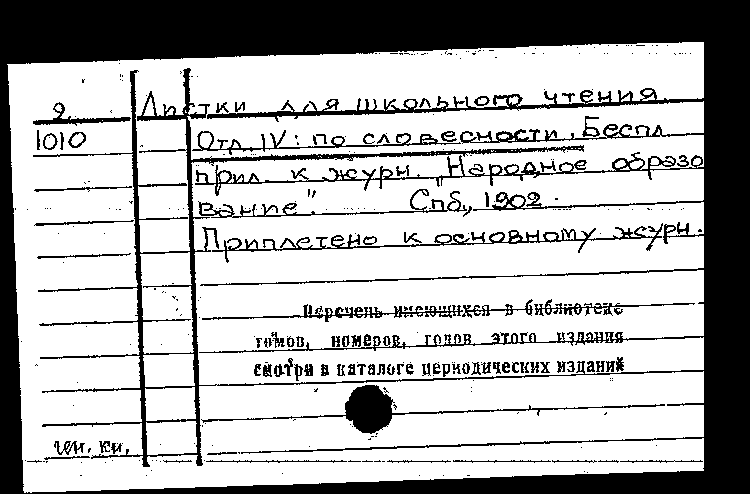 9 Листки для школьного чтения
1010 Отд. IV: по словесности. Беспл.
прил. к журн. „Народное образо
вание". Спб., 1902.
Приплетено к основному журн.
Перечень имеющихся в библиотеке
томов, номеров, годов этого издания
смотри в каталоге периодических изданий